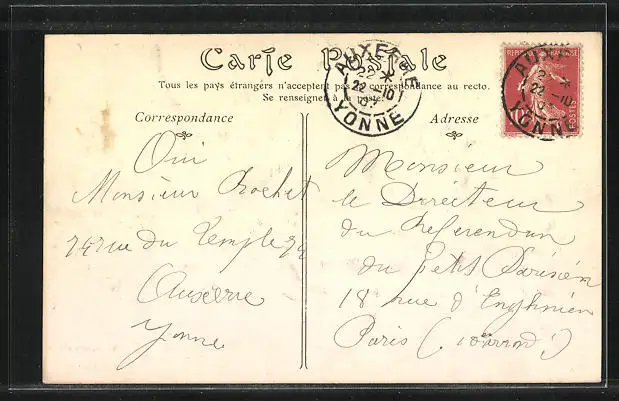 Carte Postale
Tous les pays étrangers n'acceptent pas la correspondance au recto.
Se renseigner à la poste.
Correspondance
Adresse
AUXERRE
22 -10
07
YONNE
RÉPUBLIQUE FRANÇAISE
POSTES
10
AUXERRE
22 -10
YONNE
Oui
Monsieur Rochet
74 rue du Temple 74
Auxerre
Yonne
Monsieur
le Directeur
du Referendun
du Petit Parisien
18 rue d'Enghinien
Paris (10 arrond.)